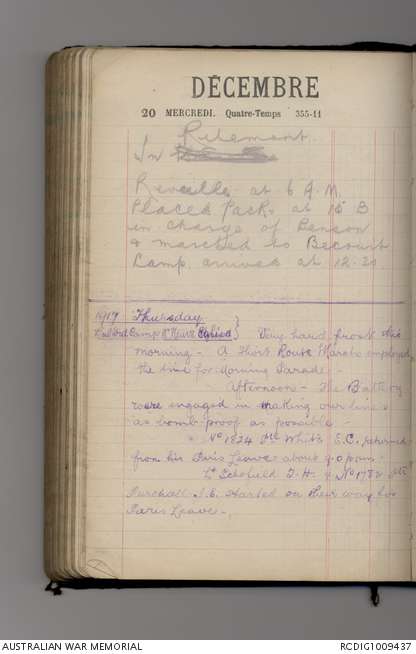 DÉCEMBRE
20 MERCREDI. Quatre-Temps 355-11
Ribemont.
In
Reveille at 6 A.M.
Placed Packs at 15 B
in charge of Benson
& marched to Becourt
Camp arrived at 12.20
1917 Thursday
Camp Nr } Very hard frost this
morning - A Short Route March employed
the time for Morning Parade. -
Afternoon - The Battery
were engaged in making our lines
as bomb-proof as possible
No 1824 Pte White E.C. returned
from his Paris Leave about 9.0 p.m.
Lt Schofield T.H. & No 1782 Pte
Purchall J.E. started on their way for
Paris Leave -
AUSTRALIAN WAR MEMORIAL
RCDIG1009437